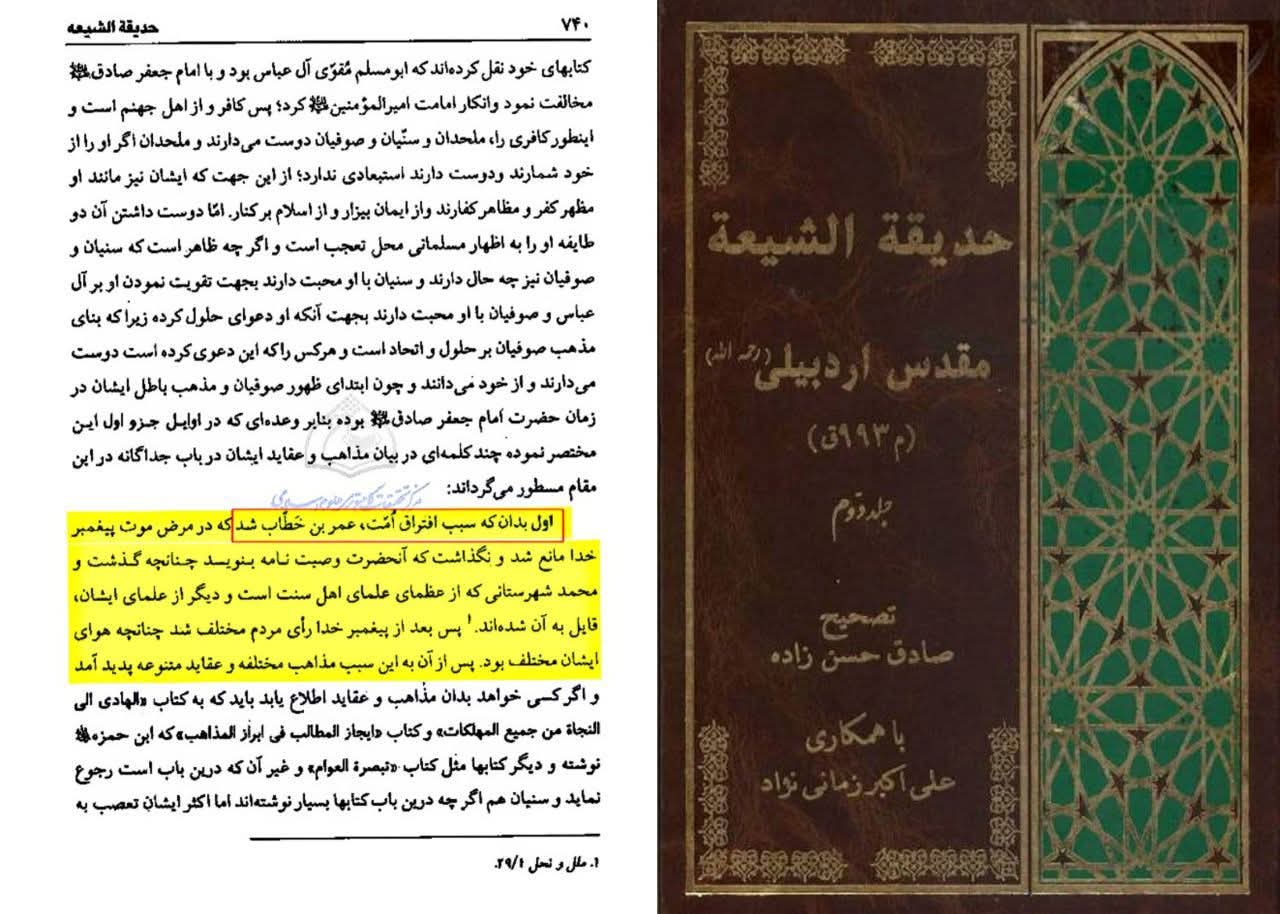 ۷۴۰
حدیقة الشیعه
کتابهای خود نقل کرده‌اند که ابومسلم مُقوّی آل عباس بود و با امام جعفر صادق
مخالفت نمود وانکار امامت امیرالمؤمنین کرد؛ پس کافر و از اهل جهنم است و
اینطور کافری را، ملحدان و سنّیان و صوفیان دوست می‌دارند و ملحدان اگر او را از
خود شمارند ودوست دارند استبعادی ندارد؛ از این جهت که ایشان نیز مانند او
مظهر کفر و مظاهر کفارند واز ایمان بیزار و از اسلام بر کنار. امّا دوست داشتن آن دو
طایفه او را به اظهار مسلمانی محل تعجب است و اگر چه ظاهر است که سنیان و
صوفیان نیز چه حال دارند و سنیان با او محبت دارند بجهت تقویت نمودن او بر آل
عباس و صوفیان با او محبت دارند بجهت آنکه او دعوای حلول کرده زیرا که بنای
مذهب صوفیان بر حلول و اتحاد است و هرکس را که این دعوی کرده است دوست
می‌دارند و از خود می‌دانند و چون ابتدای ظهور صوفیان و مذهب باطل ایشان در
زمان حضرت امام جعفر صادق بوده بنابر وعده‌ای که در اوایل جزو اول این
مختصر نموده چند کلمه‌ای در بیان مذاهب و عقاید ایشان در باب جداگانه در این
مقام مسطور می‌گرداند:
اول بدان که سبب افتراق اُمّت، عمر بن خَطّاب شد که در مرض موت پیغمبر
خدا مانع شد و نگذاشت که آنحضرت وصیت نامه بنویسد چنانچه گذشت و
محمد شهرستانی که از عظمای علمای اهل سنت است و دیگر از علمای ایشان،
قایل به آن شده‌اند.۱ پس بعد از پیغمبر خدا رأی مردم مختلف شد چنانچه هوای
ایشان مختلف بود. پس از آن به این سبب مذاهب مختلفه و عقاید متنوعه پدید آمد
و اگر کسی خواهد بدان مذاهب و عقاید اطلاع یابد باید که به کتاب «الهادی الی
النجاة من جمیع المهلکات» و کتاب «ایجاز المطالب فی ابراز المذاهب» که ابن حمزه
نوشته و دیگر کتابها مثل کتاب «تبصرة العوام» و غیر آن که درین باب است رجوع
نماید و سنیان هم اگر چه درین باب کتابها بسیار نوشته‌اند اما اکثر ایشان تعصب به
۱. ملل و نحل ۲۹/۱.
حدیقة الشیعة
مقدس اردبیلی (رحمه الله)
(م ۹۹۳ق)
جلد دوم
تصحیح
صادق حسن زاده
با همکاری
علی اکبر زمانی نژاد